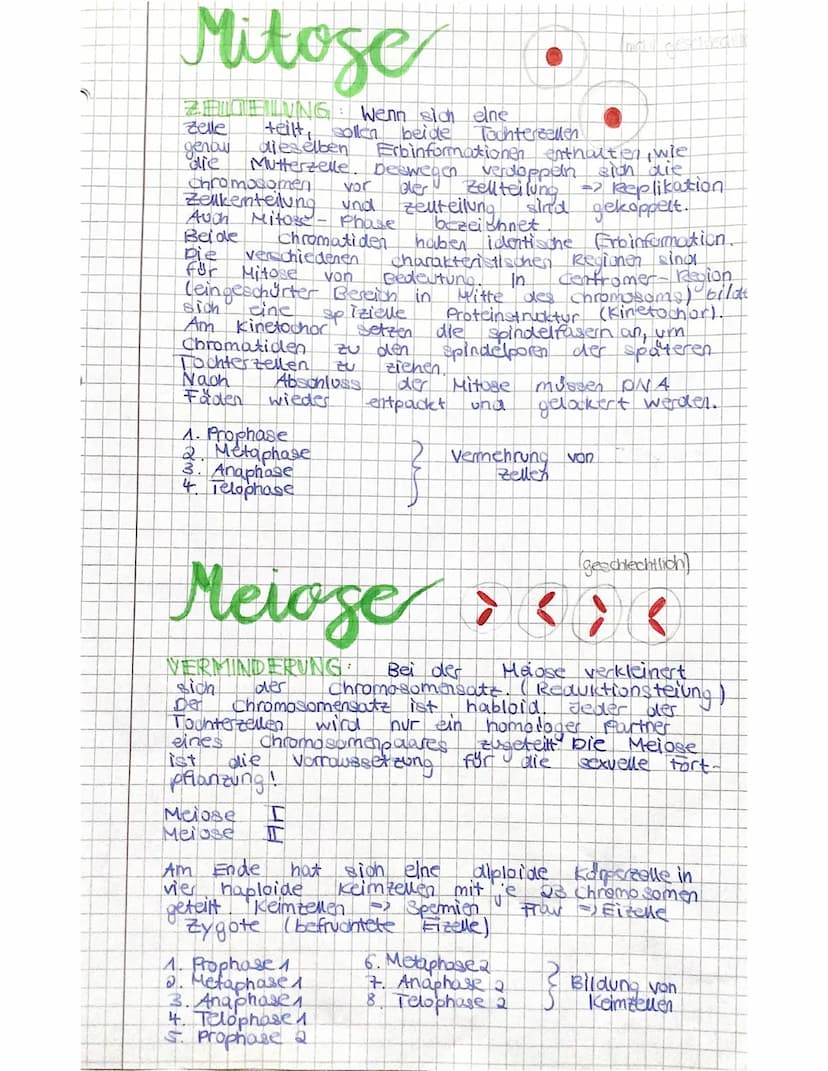 Mitose
ZELLTEILUNG: Wenn sich eine
Zelle teilt, sollen beide Tochterzellen
genau dieselben Erbinformationen enthalten, wie
die Mutterzelle. Deswegen verdoppeln sich die
Chromosomen vor der Zellteilung => Replikation
Zellkernteilung und Zellteilung sind gekoppelt.
Auch Mitose-Phase bezeichnet.
Beide Chromatiden haben identische Erbinformation.
Die verschiedenen charakteristischen Regionen sind
für Mitose von Bedeutung. In Centromer-Region
(eingeschürter Bereich in Mitte des Chromosoms) bildt
sich eine spizielle Proteinstruktur (Kinetochor).
Am Kinetochor setzen die Spindelfasern an, um
Chromatiden zu den Spindelporen der späteren
Tochterzellen zu ziehen.
Nach Abschluss der Mitose müssen DNA
Fäden wieder entpackt und gelockert werden.
1. Prophase
2. Metaphase
3. Anaphase
4. Telophase
Vermehrung von
Zellen
(geschlechtlich)
Meiose
VERMINDERUNG: Bei der Meiose verkleinert
sich der Chromosomensatz. (Reduktionsteiung)
Der Chromosomensatz ist habloid. Jeder der
Tochterzellen wird nur ein homologer Partner
eines Chromosomenpaares zugeteilt Die Meiose
ist die Vorraussetzung für die sexuelle Fort-
pflanzung!
Meiose I
Meiose II
Am Ende hat sich eine diploide Körperzelle in
vier haploide Keimzellen mit je 23 Chromosomen
geteilt. Keimzellen => Spermien Frau => Eizelle
Zygote (befruchtete Eizelle)
1. Prophase 1
2. Metaphase 1
3. Anaphase 1
4. Telophase 1
5. Prophase 2
6. Metaphase 2
7. Anaphase 2
8. Telophase 2
Bildung von
Keimzellen